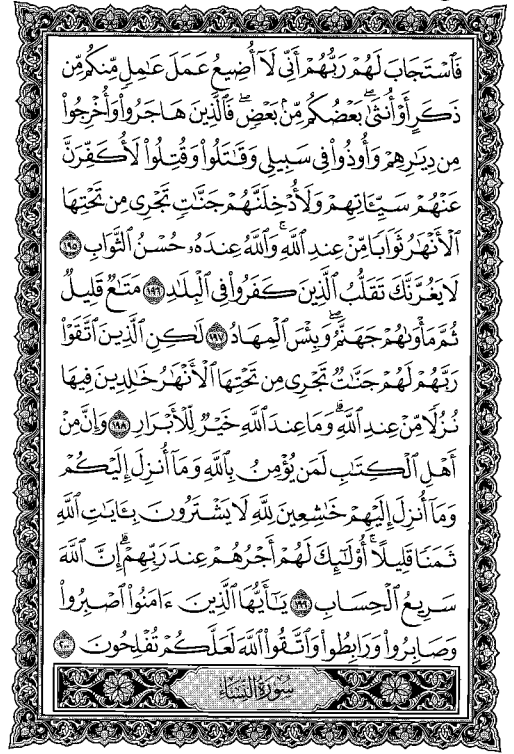 فَٱسْتَجَابَ لَهُمْ رَبُّهُمْ أَنِّي لَآ أُضِيعُ عَمَلَ عَٰمِلٍ مِّنكُم مِّن
ذَكَرٍ أَوْ أُنثَىٰ ۖ بَعْضُكُم مِّنۢ بَعْضٍ ۖ فَٱلَّذِينَ هَاجَرُوا۟ وَأُخْرِجُوا۟
مِن دِيَٰرِهِمْ وَأُوذُوا۟ فِي سَبِيلِي وَقَٰتَلُوا۟ وَقُتِلُوا۟ لَأُكَفِّرَنَّ
عَنْهُمْ سَيِّـَٔاتِهِمْ وَلَأُدْخِلَنَّهُمْ جَنَّٰتٍ تَجْرِي مِن تَحْتِهَا
ٱلْأَنْهَٰرُ ثَوَابًا مِّنْ عِندِ ٱللَّهِ ۗ وَٱللَّهُ عِندَهُۥ حُسْنُ ٱلثَّوَابِ ١٩٥
لَا يَغُرَّنَّكَ تَقَلُّبُ ٱلَّذِينَ كَفَرُوا۟ فِي ٱلْبِلَٰدِ ١٩٦ مَتَٰعٌ قَلِيلٌ
ثُمَّ مَأْوَىٰهُمْ جَهَنَّمُ ۚ وَبِئْسَ ٱلْمِهَادُ ١٩٧ لَٰكِنِ ٱلَّذِينَ ٱتَّقَوْا۟
رَبَّهُمْ لَهُمْ جَنَّٰتٌ تَجْرِي مِن تَحْتِهَا ٱلْأَنْهَٰرُ خَٰلِدِينَ فِيهَا
نُزُلًا مِّنْ عِندِ ٱللَّهِ ۗ وَمَا عِندَ ٱللَّهِ خَيْرٌ لِّلْأَبْرَارِ ١٩٨ وَإِنَّ مِنْ
أَهْلِ ٱلْكِتَٰبِ لَمَن يُؤْمِنُ بِٱللَّهِ وَمَآ أُنزِلَ إِلَيْكُمْ
وَمَآ أُنزِلَ إِلَيْهِمْ خَٰشِعِينَ لِلَّهِ لَا يَشْتَرُونَ بِـَٔايَٰتِ ٱللَّهِ
ثَمَنًا قَلِيلًا ۗ أُو۟لَٰٓئِكَ لَهُمْ أَجْرُهُمْ عِندَ رَبِّهِمْ ۗ إِنَّ ٱللَّهَ
سَرِيعُ ٱلْحِسَابِ ١٩٩ يَٰٓأَيُّهَا ٱلَّذِينَ ءَامَنُوا۟ ٱصْبِرُوا۟
وَصَابِرُوا۟ وَرَابِطُوا۟ وَٱتَّقُوا۟ ٱللَّهَ لَعَلَّكُمْ تُفْلِحُونَ ٢٠٠
سُورَةُ النِّسَاءِ